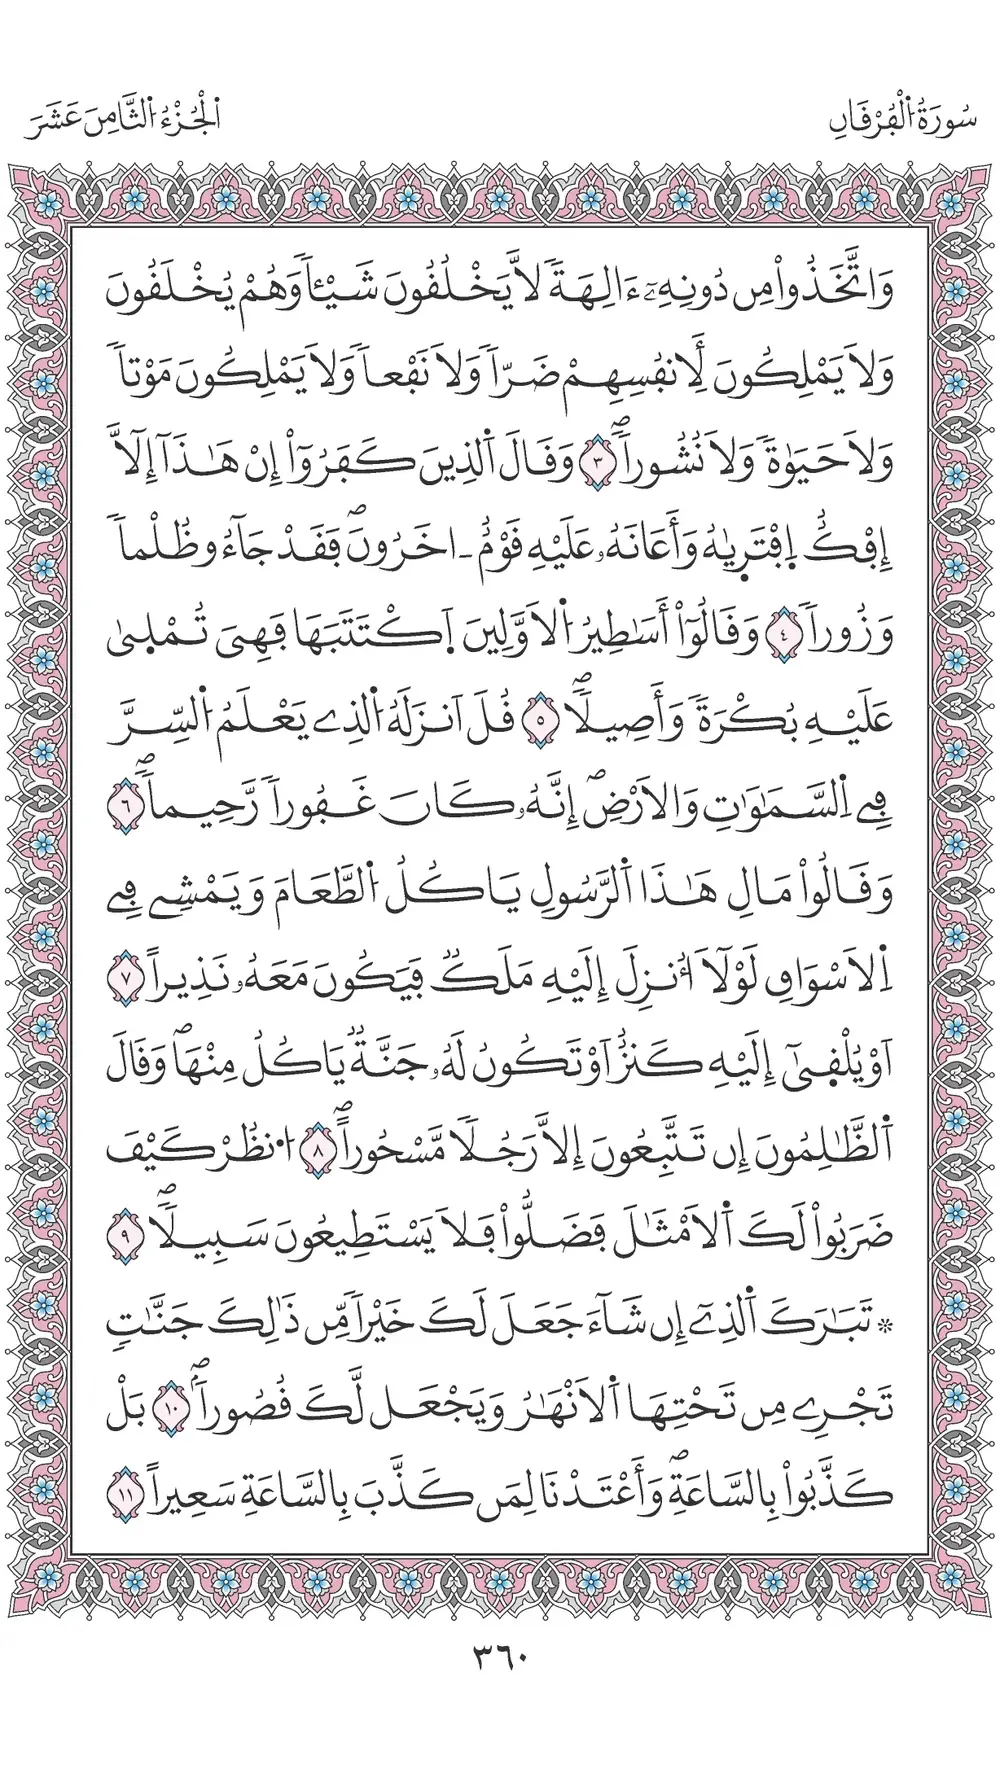 سُورَةُ اُ۬لْفُرْقَانِ
اَ۬لْجُزْءُ اُ۬لثَّامِنَ عَشَرَ
وَاتَّخَذُواْ مِن دُونِهِۦٓ ءَالِهَةٗ لَّا يَخْلُقُونَ شَيْـٔاٗ وَهُمْ يُخْلَقُونَ
وَلَا يَمْلِكُونَ لِأَنفُسِهِمْ ضَرّاٗ وَلَا نَفْعاٗ وَلَا يَمْلِكُونَ مَوْتاٗ
وَلَا حَيَوٰةٗ وَلَا نُشُوراٗۖ ٣ وَقَالَ اَ۬لذِينَ كَفَرُوٓاْ إِنْ هَٰذَآ إِلَّآ
إِفْكٌ اِ۪فْتَر۪يٰهُ وَأَعَانَهُۥ عَلَيْهِ قَوْمٌ ـ اخَرُونَۖ فَقَدْ جَآءُو ظُلْماٗ
وَزُوراٗ ٤ وَقَالُوٓاْ أَسَٰطِيرُ اُ۬لَاوَّلِينَ اَ۪كْتَتَبَهَا فَهِيَ تُمْل۪يٰ
عَلَيْهِ بُكْرَةٗ وَأَصِيلاٗۖ ٥ قُلَ اَنزَلَهُ اُ۬لذِے يَعْلَمُ اُ۬لسِّرَّ
فِے اِ۬لسَّمَٰوَٰتِ وَالَارْضِۖ إِنَّهُۥ كَانَ غَفُوراٗ رَّحِيماٗۖ ٦
وَقَالُواْ مَالِ هَٰذَا اَ۬لرَّسُولِ يَاكُلُ اُ۬لطَّعَامَ وَيَمْشِے فِے
اِ۬لَاسْوَاقِ لَوْلَآ أُنزِلَ إِلَيْهِ مَلَكٞ فَيَكُونَ مَعَهُۥ نَذِيراً ٧
اَوْ يُلْق۪يٰٓ إِلَيْهِ كَنزٌ اَوْ تَكُونُ لَهُۥ جَنَّةٞ يَاكُلُ مِنْهَاۖ وَقَالَ
اَ۬لظَّٰلِمُونَ إِن تَتَّبِعُونَ إِلَّا رَجُلاٗ مَّسْحُوراًۖ ٨ اُ۟نظُرْ كَيْفَ
ضَرَبُواْ لَكَ اَ۬لَامْثَٰلَ فَضَلُّواْ فَلَا يَسْتَطِيعُونَ سَبِيلاٗۖ ٩
* تَبَٰرَكَ اَ۬لذِےٓ إِن شَآءَ جَعَلَ لَكَ خَيْراٗ مِّن ذَٰلِكَ جَنَّٰتٖ
تَجْرِے مِن تَحْتِهَا اَ۬لَانْهَٰرُ وَيَجْعَل لَّكَ قُصُوراَۢۖ ١٠ بَلْ
كَذَّبُواْ بِالسَّاعَةِۖ وَأَعْتَدْنَا لِمَن كَذَّبَ بِالسَّاعَةِ سَعِيراً ١١
٣٦٠